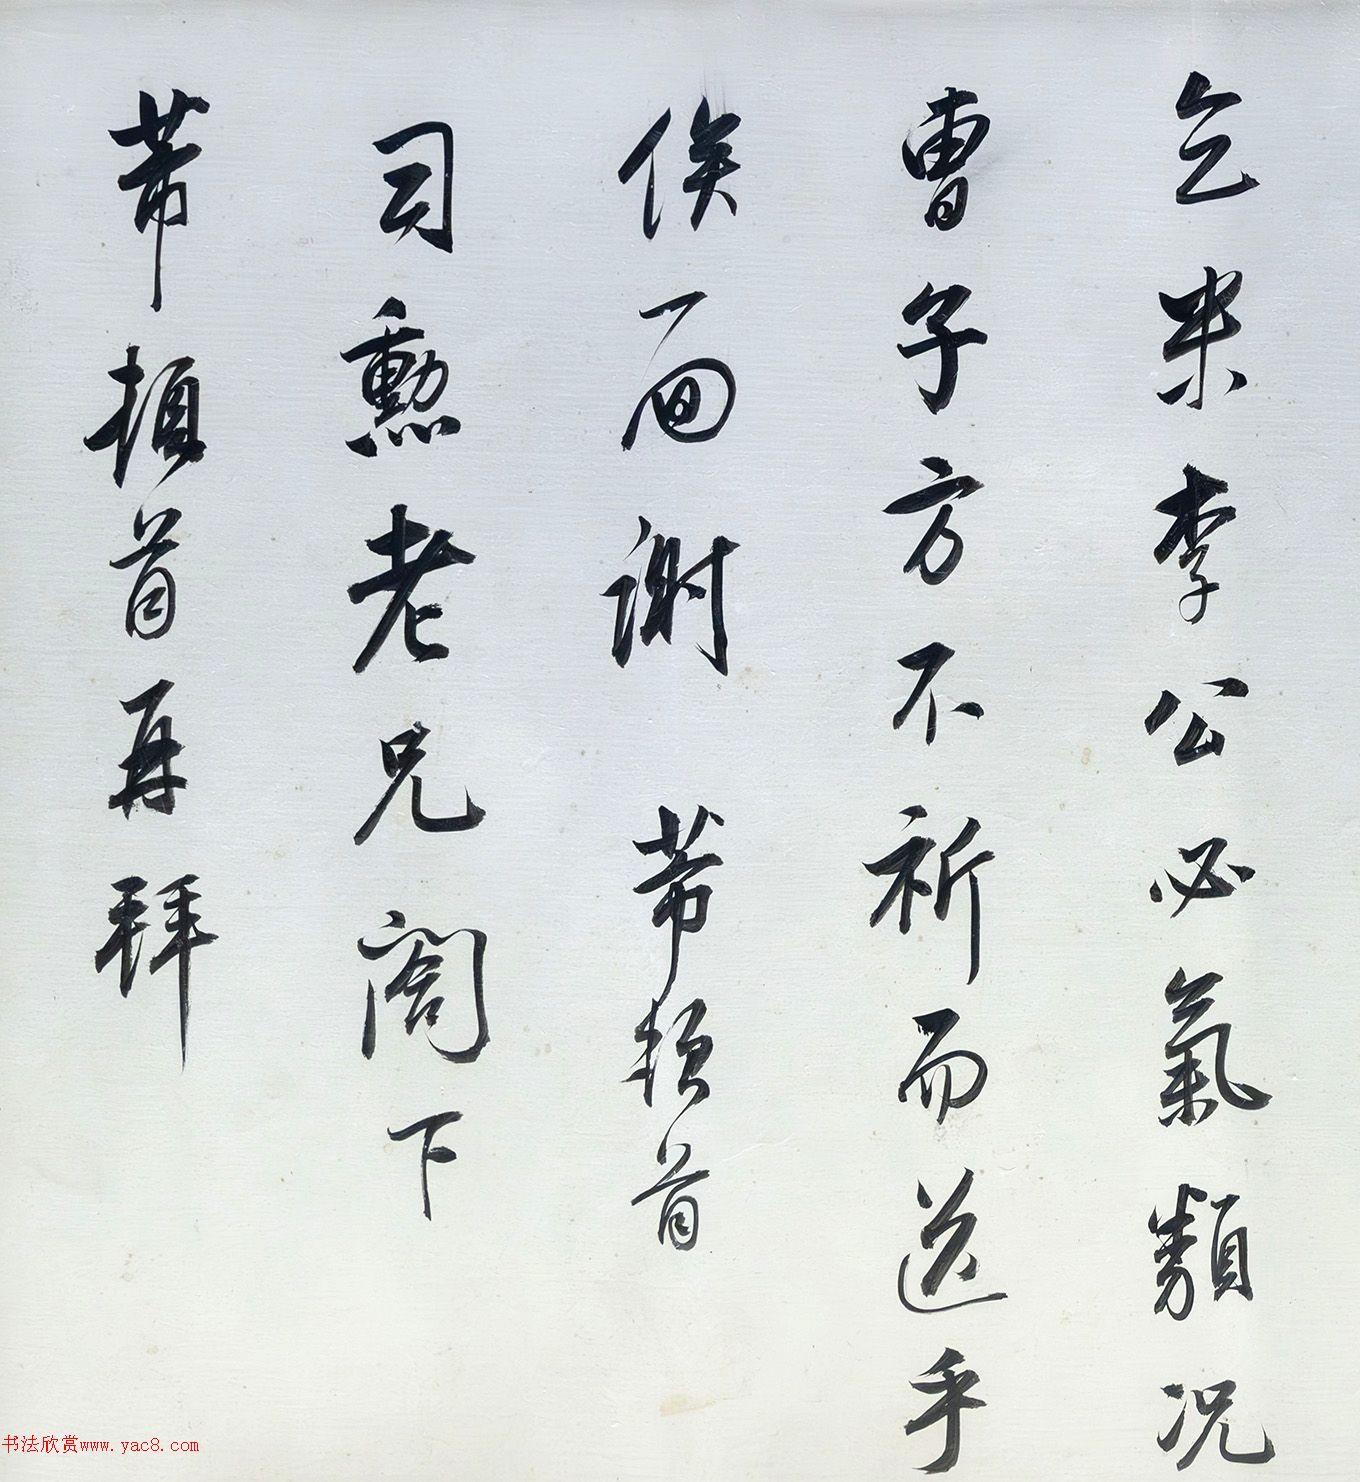 乞米李公必氣類况
曹子方不祈而送乎
俟面謝 芾頓首
司勲老兄閤下
芾頓首再拜
书法欣赏www.yac8.com